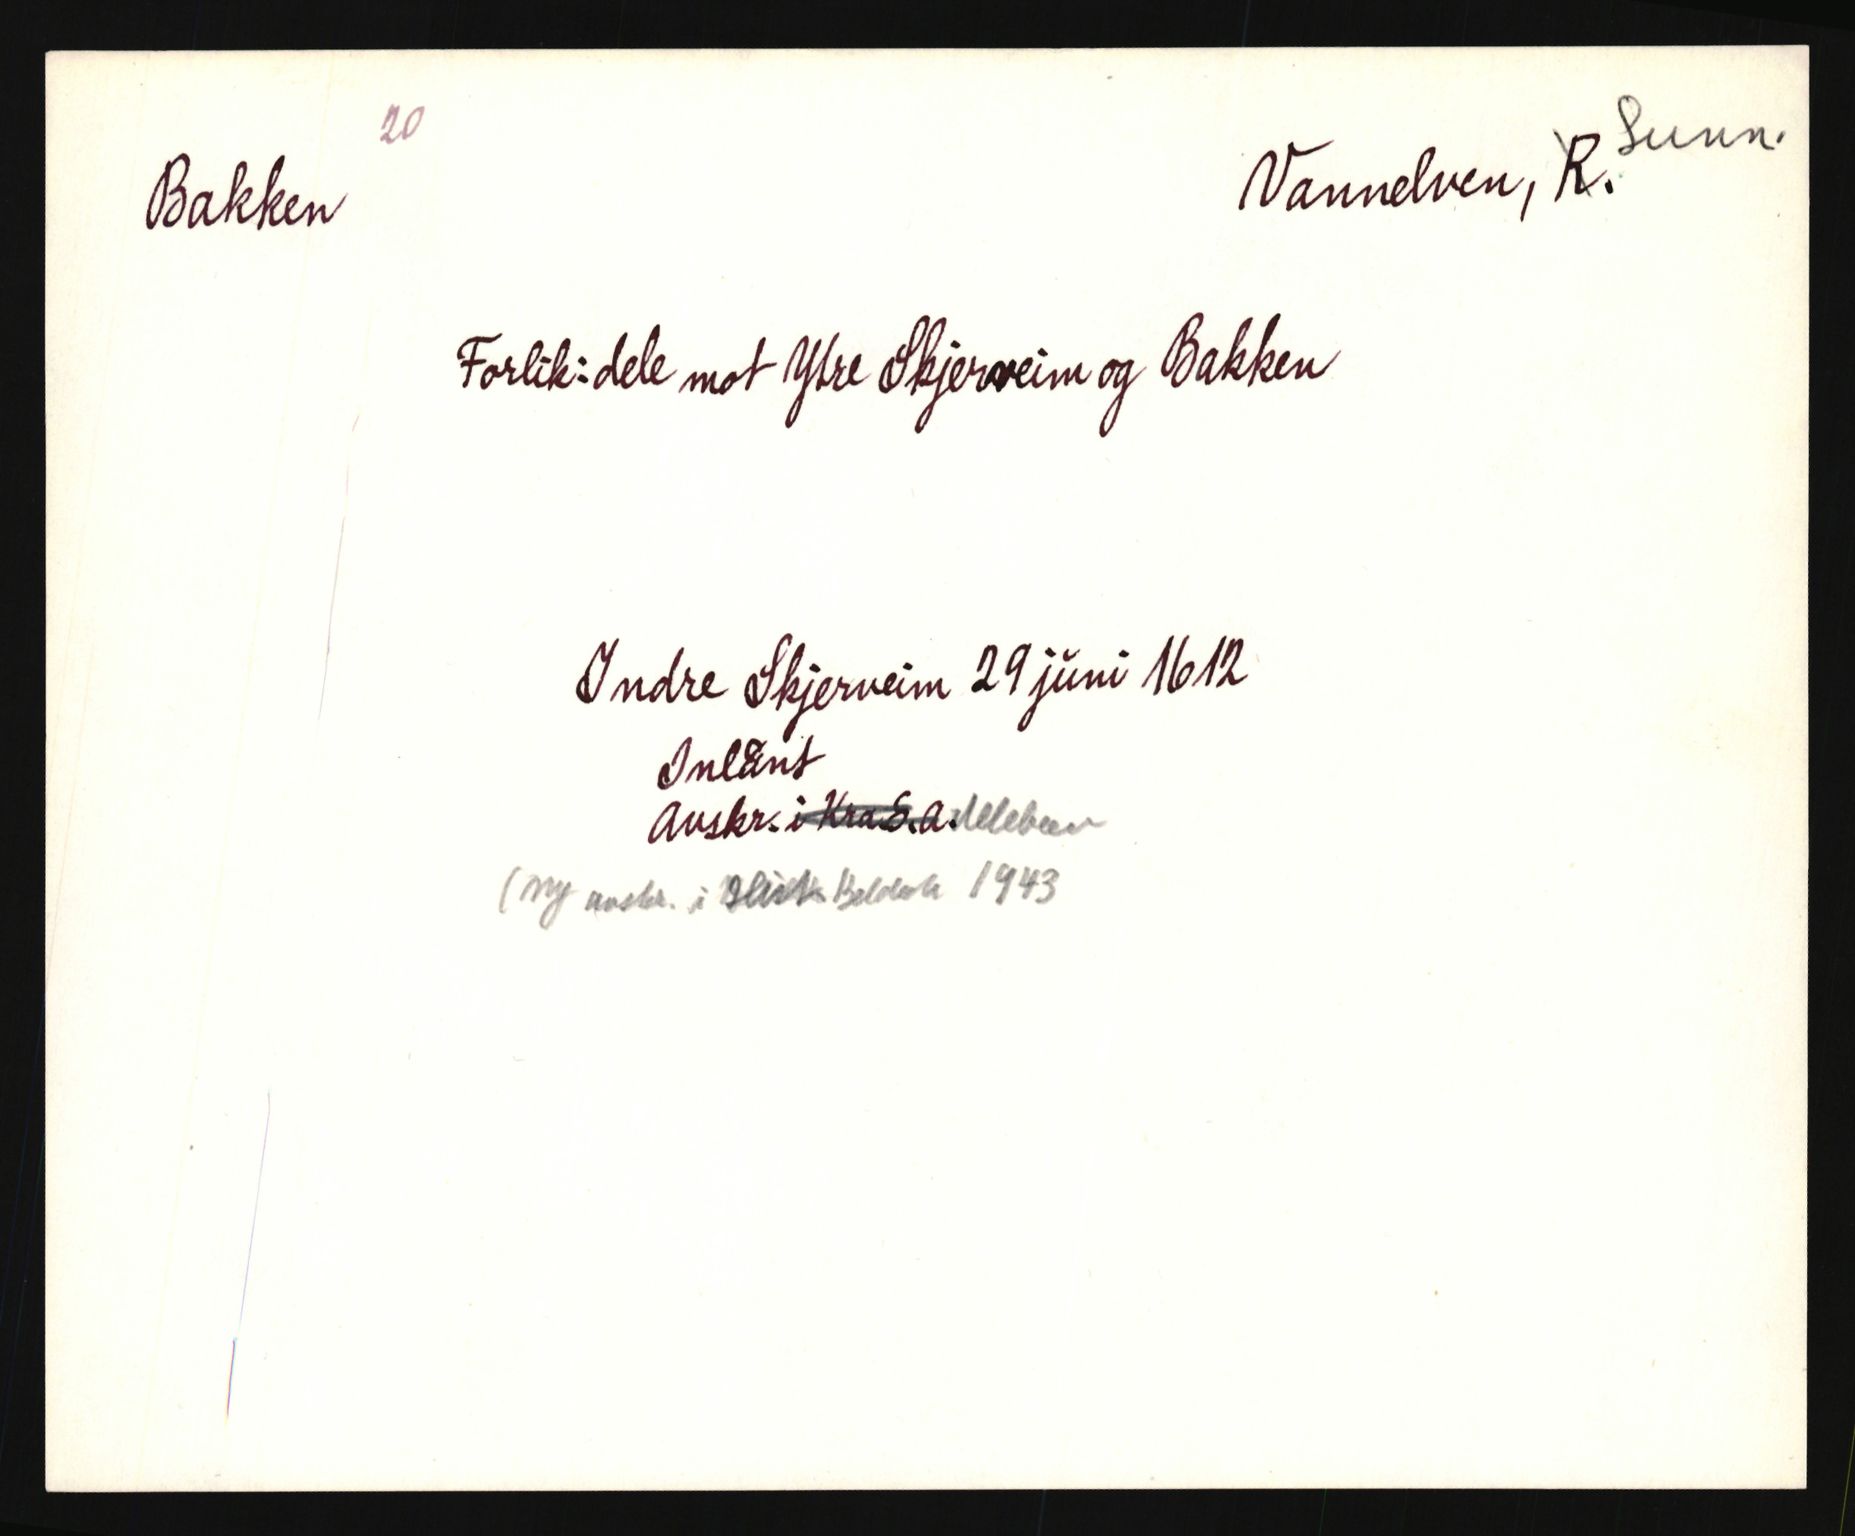 20
Bakken
Vannelven, R. Sunn.
Forlik: dele mot Ytre Skjerveim og Bakken
Indre Skjerveim 29 juni 1612
Inlånt
Avskr. i Kra S.a.
(Ny avskr. i 1943